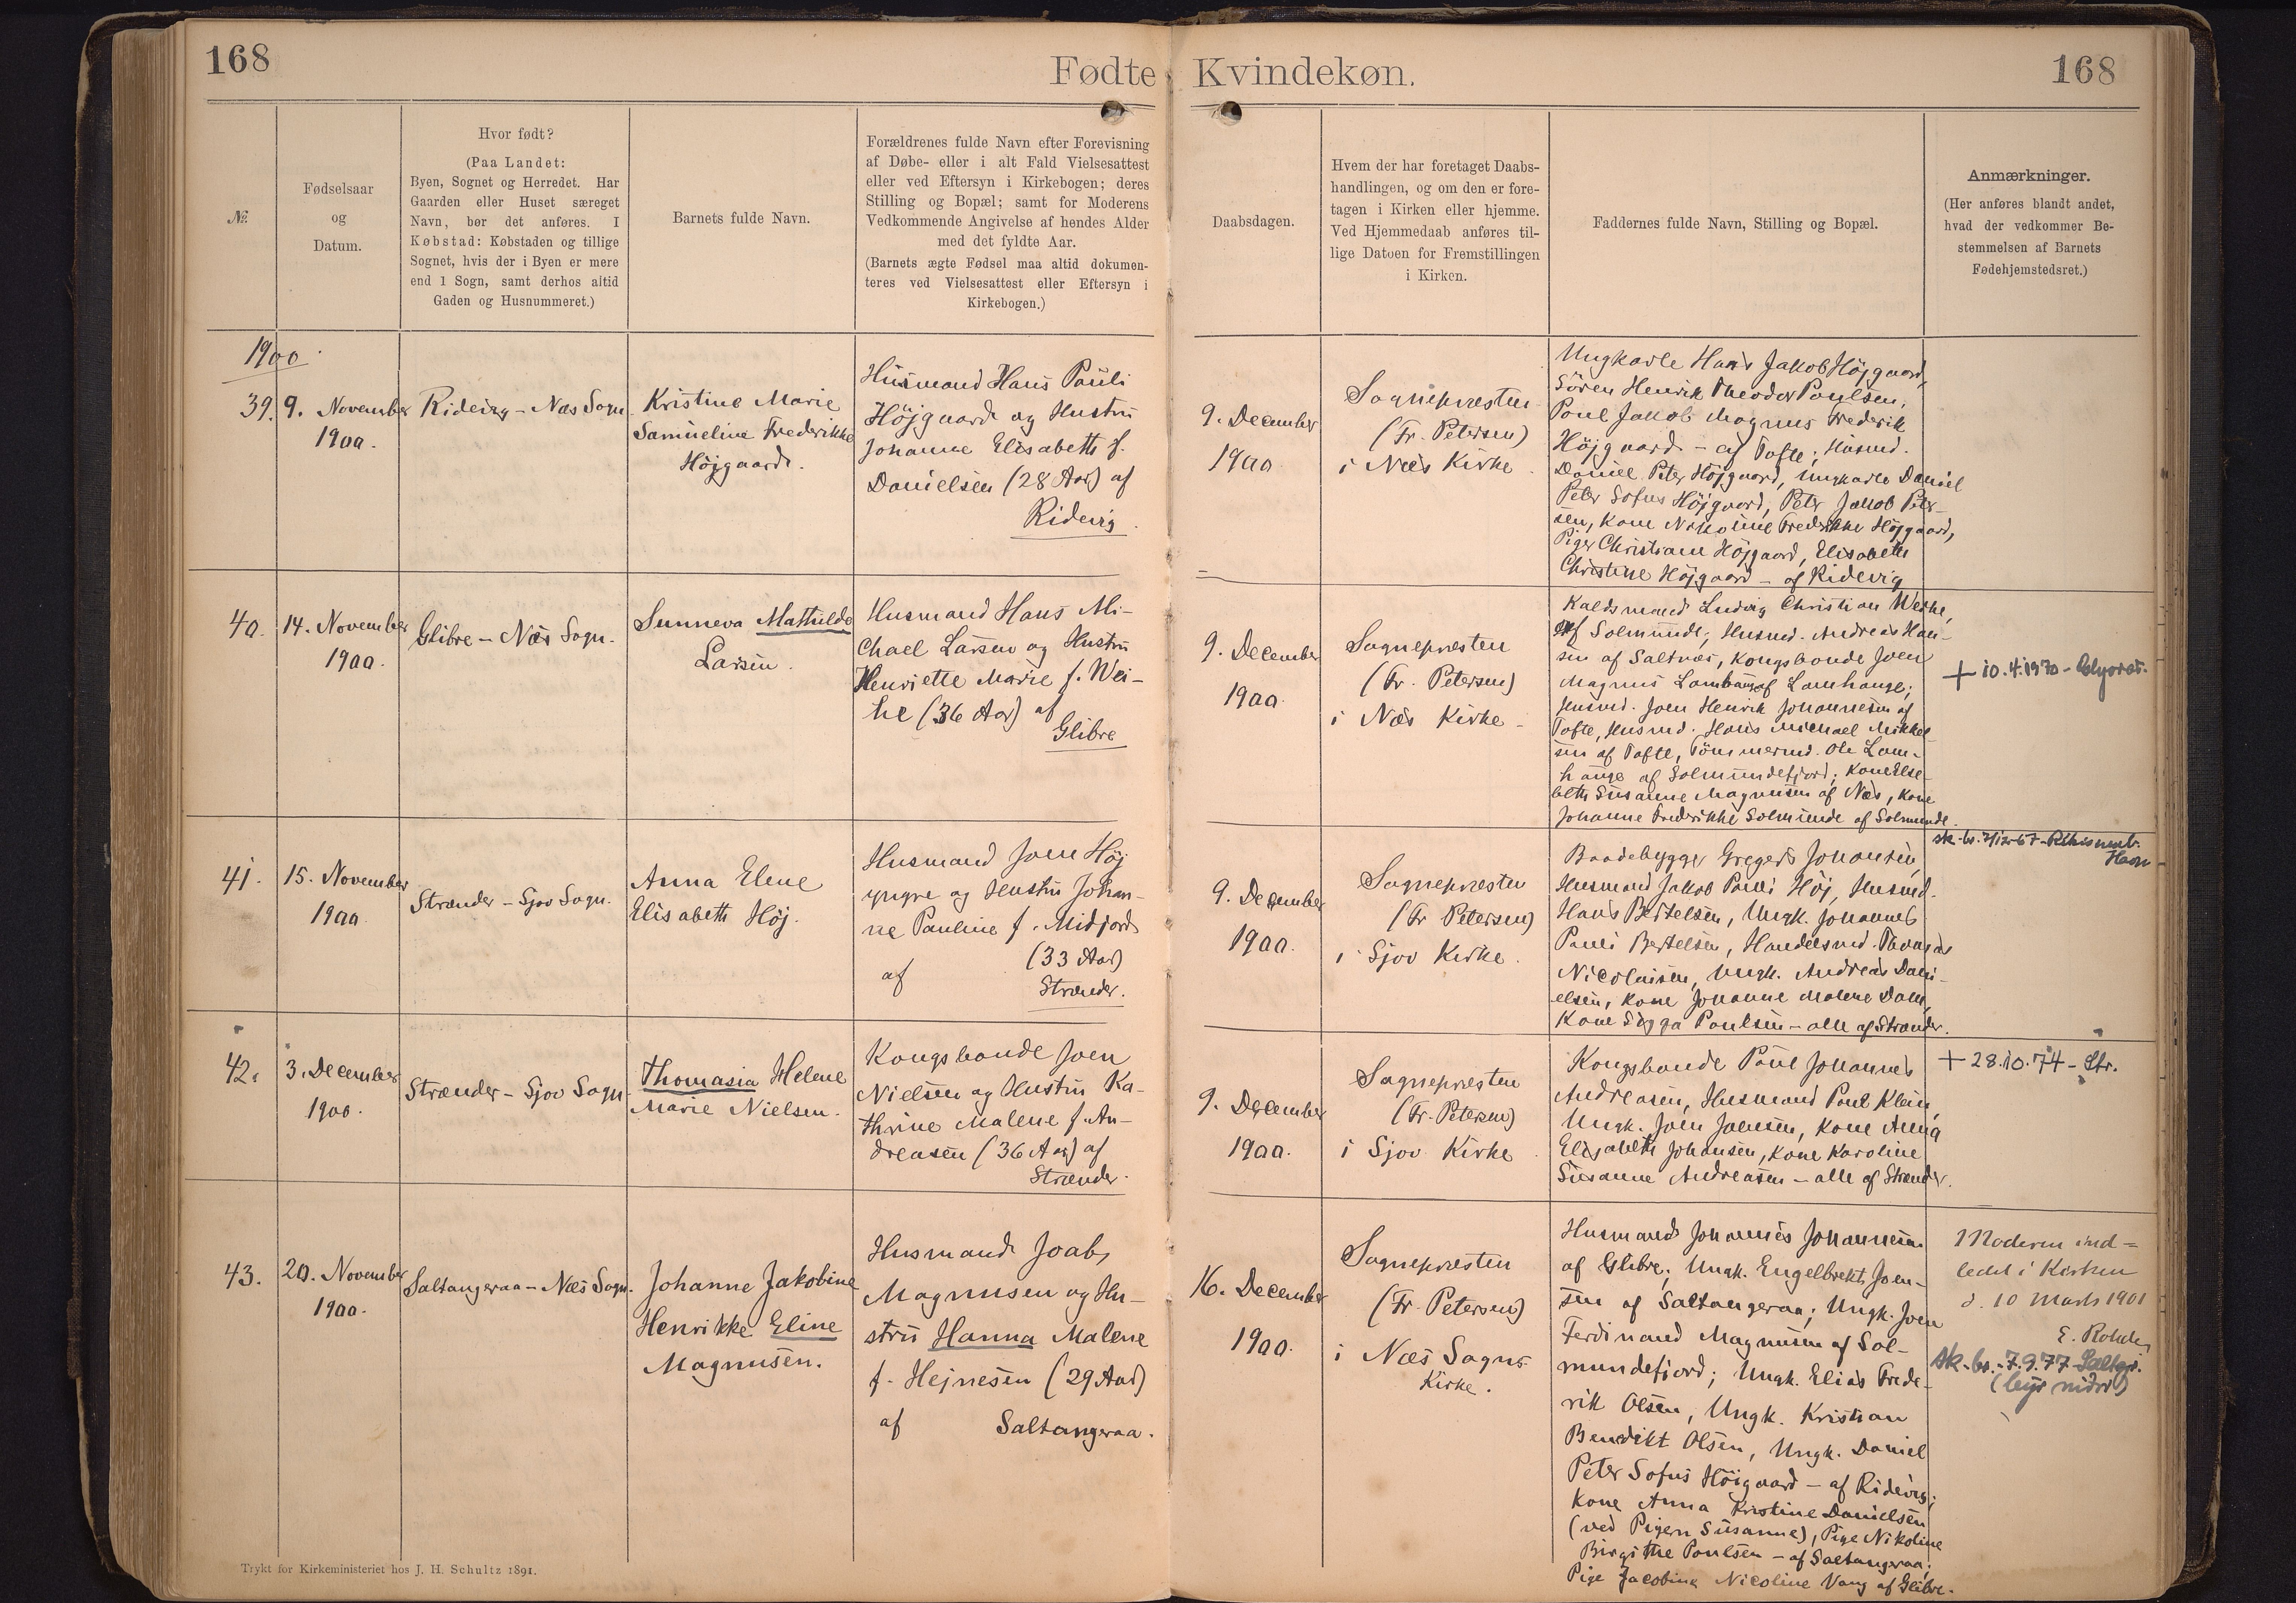 168
Fødte
Kvindekøn.
168
№.
Fødselsaar
og
Datum.
Hvor født?
(Paa Landet:
Byen, Sognet og Herredet. Har
Gaarden eller Huset særeget
Navn, bør det anføres. I
Købstad: Købstaden og tillige
Sognet, hvis der i Byen er mere
end 1 Sogn, samt derhos altid
Gaden og Husnummeret.)
Barnets fulde Navn.
Forældrenes fulde Navn efter Forevisning
af Døbe- eller i alt Fald Vielsesattest
eller ved Eftersyn i Kirkebogen; deres
Stilling og Bopæl; samt for Moderens
Vedkommende Angivelse af hendes Alder
med det fyldte Aar.
(Barnets ægte Fødsel maa altid dokumen-
teres ved Vielsesattest eller Eftersyn i
Kirkebogen.)
Daabsdagen.
Hvem der har foretaget Daabs-
handlingen, og om den er fore-
tagen i Kirken eller hjemme.
Ved Hjemmedaab anføres til-
lige Datoen for Fremstillingen
i Kirken.
Faddernes fulde Navn, Stilling og Bopæl.
Anmærkninger.
(Her anføres blandt andet,
hvad der vedkommer Be-
stemmelsen af Barnets
Fødehjemstedsret.)
1900
39.
9. November
1900.
Ridevig - Næs Sogn.
Kristine Marie
Samueline Frederikke
Højgaard.
Husmand Hans Pauli
Højgaard og Hustru
Johanne Elisabeth f.
Danielsen (28 Aar) af
Ridevig.
9. December
1900
Sognepræsten
(Fr. Petersen)
i Næs Kirke.
Ungkarle Hans Jakob Højgaard,
Sören Henrik Theodor Poulsen,
Poul Jakob Magnus Frederik
Højgaard - af Tofte; Husmd.
Daniel Peter Højgaard, Ungkarle Daniel
Peter Sofus Højgaard, Peter Jakob Peter-
sen, Kone Nikoline Frederikke Højgaard,
Piger Christiane Højgaard, Elisabeth
Christine Højgaard - af Ridevig
40.
14. November
1900.
Glibre - Næs Sogn.
Sunneva Mathilde
Larsen.
Husmand Hans Mi-
chael Larsen og Hustru
Henriette Marie f. Wei-
he (36 Aar) af
Glibre
9. December
1900
Sognepræsten
(Fr. Petersen)
i Næs Kirke -
Kaldsmand Ludvig Christian Weihe,
af Solmunde; Husmd. Andreas Han-
sen af Saltnæs, Kongsbonde Joen
Magnus Lamhauge af Lamhauge;
Husmd. Joen Henrik Johannesen af
Tofte, Husmd. Hans Michael Mikkel-
sen af Tofte, Tömmermd. Ole Lam-
hauge af Solmundefjord; Kone Else-
beth Susanne Magnusen af Næs, Kone
Johanne Frederikke Solmunde af Solmunde.
+ 10.4.1970 -
41.
15. November
1900
Strænder - Sjov Sogn.
Anna Elene
Elisabeth Høj.
Husmand Joen Høj
yngre og Hustru Johan-
ne Pauline f. Midjord
(33 Aar)
af
Strænder.
9. December
1900.
Sognepræsten
(Fr Petersen)
i Sjov Kirke.
Baadebygger Gregers Johansen,
Husmand Jakob Pauli Høj, Husmd.
Hans Bertelsen, Ungk. Johannes
Pauli Bertelsen, Handelsmd. Thomas
Nicolaisen, Ungk. Andreas Dani-
elsen, Kone Johanne Malene Dam,
Kone Sigga Poulsen - alle af Strænder.
42.
3. December
1900.
Strænder - Sjov Sogn.
Thomasia Helene
Marie Nielsen.
Kongsbonde Joen
Nielsen og Hustru Ka-
thrine Malene f. An-
dreasen (36 Aar) af
Strænder.
9. December
1900.
Sognepræsten
(Fr. Petersen)
i Sjov Kirke.
Kongsbonde Poul Johannes
Andreasen, Husmand Poul Klein,
Ungk. Joen Joensen, Kone Anna
Elisabeth Johansen, Kone Karoline
Susanne Andreasen - alle af Strænder.
+ 28.10.74 - Str.
43.
20. November
1900.
Saltangeraa - Næs Sogn.
Johanne Jakobine
Henrikke Eline
Magnusen.
Husmand Joab
Magnusen og Hu-
stru Hanna Malene
f. Hejnesen (29 Aar)
af
Saltangeraa.
16. December
1900.
Sognepræsten
(Fr. Petersen)
i Næs Sogns
Kirke.
Husmand Johannes Johannesen
af Glibre; Ungk. Engelbrekt Joen-
sen af Saltangeraa; Ungk. Joen
Ferdinand Magnusen af Sol-
mundefjord; Ungk. Elias Frede-
rik Olsen, Ungk. Kristian
Benedikt Olsen, Ungk. Daniel
Peter Sofus Höigaard - af Ridevig;
Kone Anna Kristine Danielsen
(ved Pigen Susanne), Pige Nikoline
Birgithe Poulsen - af Saltangeraa;
Pige Jacobina Nicoline Vang af Glibre.
Moderen ind-
ledet i Kirken
d. 10 Marts 1901
sk.-br. 7.9.77
Trykt for Kirkeministeriet hos J. H. Schultz 1891.